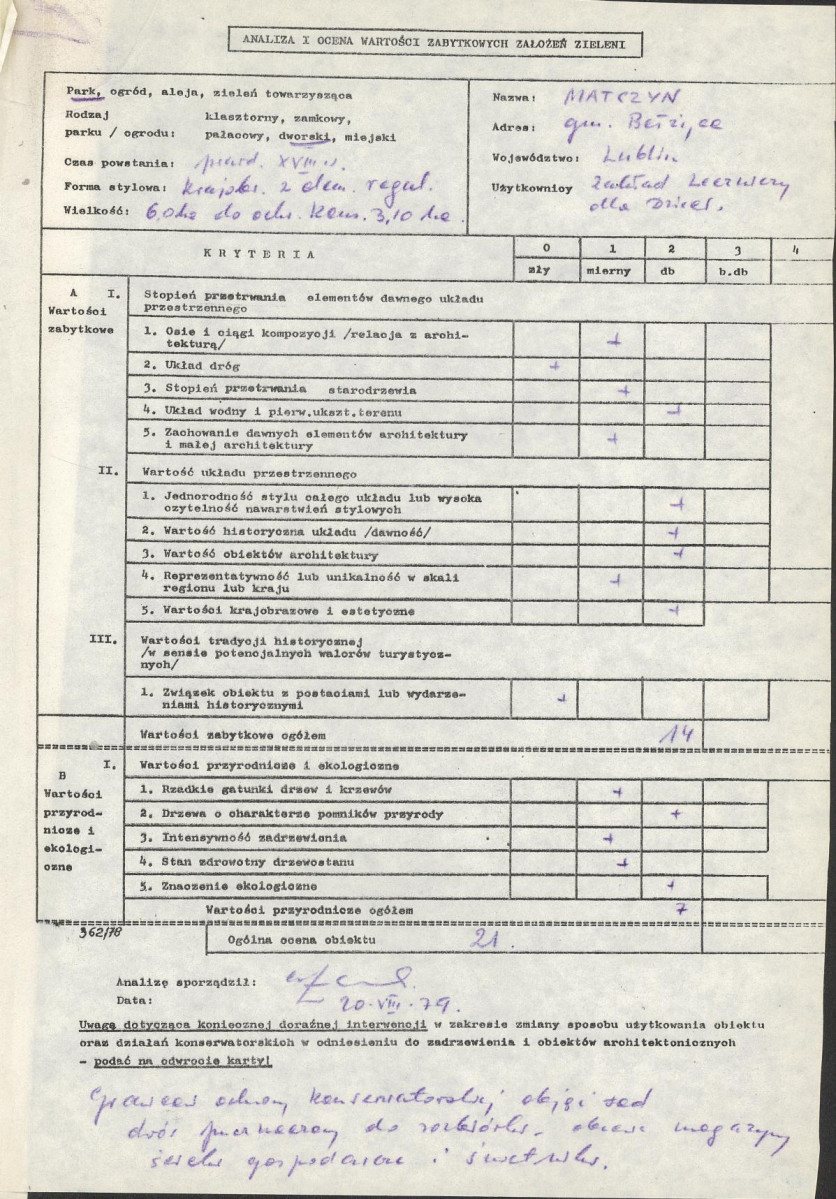 ANALIZA I OCENA WARTOŚCI ZABYTKOWYCH ZAŁOŻEŃ ZIELENI
Park, ogród, aleja, zieleń towarzysząca
Rodzaj klasztorny, zamkowy,
parku / ogrodu: pałacowy, dworski, miejski
Czas powstania: XVIII w.
Forma stylowa: krajobr. z elem. regul.
Wielkość: 6,0 ha do ochr. kons. 3,10 ha.
Nazwa: MATCZYN
Adres: gm. Bełżyce
Województwo: Lublin
Użytkownicy Zakład Leczniczy
dla Dzieci.
KRYTERIA 0 1 2 3 4
zły mierny db b.db
A I. Stopień przetrwania elementów dawnego układu
przestrzennego
Wartości
zabytkowe
1. Osie i ciągi kompozycji /relacja z archi-
tekturą/ +
2. Układ dróg +
3. Stopień przetrwania starodrzewia +
4. Układ wodny i pierw.ukszt.terenu +
5. Zachowanie dawnych elementów architektury
i małej architektury +
II. Wartość układu przestrzennego
1. Jednorodność stylu całego układu lub wysoka
czytelność nawarstwień stylowych +
2. Wartość historyczna układu /dawność/ +
3. Wartość obiektów architektury +
4. Reprezentatywność lub unikalność w skali
regionu lub kraju +
5. Wartości krajobrazowe i estetyczne +
III. Wartości tradycji historycznej
/w sensie potencjalnych walorów turystycz-
nych/
1. Związek obiektu z postaciami lub wydarze-
niami historycznymi +
Wartości zabytkowe ogółem 14
B I. Wartości przyrodnicze i ekologiczne
Wartości
przyrod-
nicze i
ekologi-
czne
1. Rzadkie gatunki drzew i krzewów +
2. Drzewa o charakterze pomników przyrody +
3. Intensywność zadrzewienia +
4. Stan zdrowotny drzewostanu +
5. Znaczenie ekologiczne +
Wartości przyrodnicze ogółem 7
362/78
Ogólna ocena obiektu 21.
Analizę sporządził:
Data: 20.VIII.79.
Uwagę dotycząca koniecznej doraźnej interwencji w zakresie zmiany sposobu użytkowania obiektu
oraz działań konserwatorskich w odniesieniu do zadrzewienia i obiektów architektonicznych
- podać na odwrocie karty!
ochrony konserwatorskiej objąć sad
dwór do rozbiórki. magazyny
gospodarcze i świetlica.